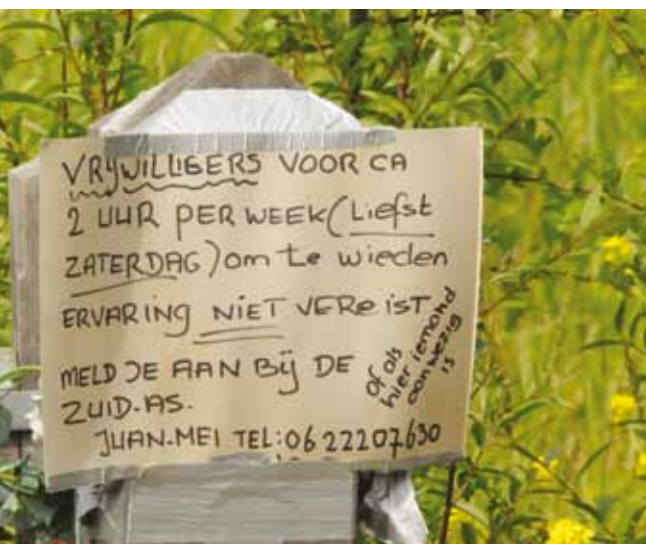 VRYWILLIGERS VOOR CA
2 UUR PER WEEK (Liefst
ZATERDAG) om te wieden
ERVARING NIET VEReiST
MELD JE AAN Bij DE
ZUID-AS.
JUAN-MEI TEL: 06 22207630
Of als
hier iemand
aanwezig
is